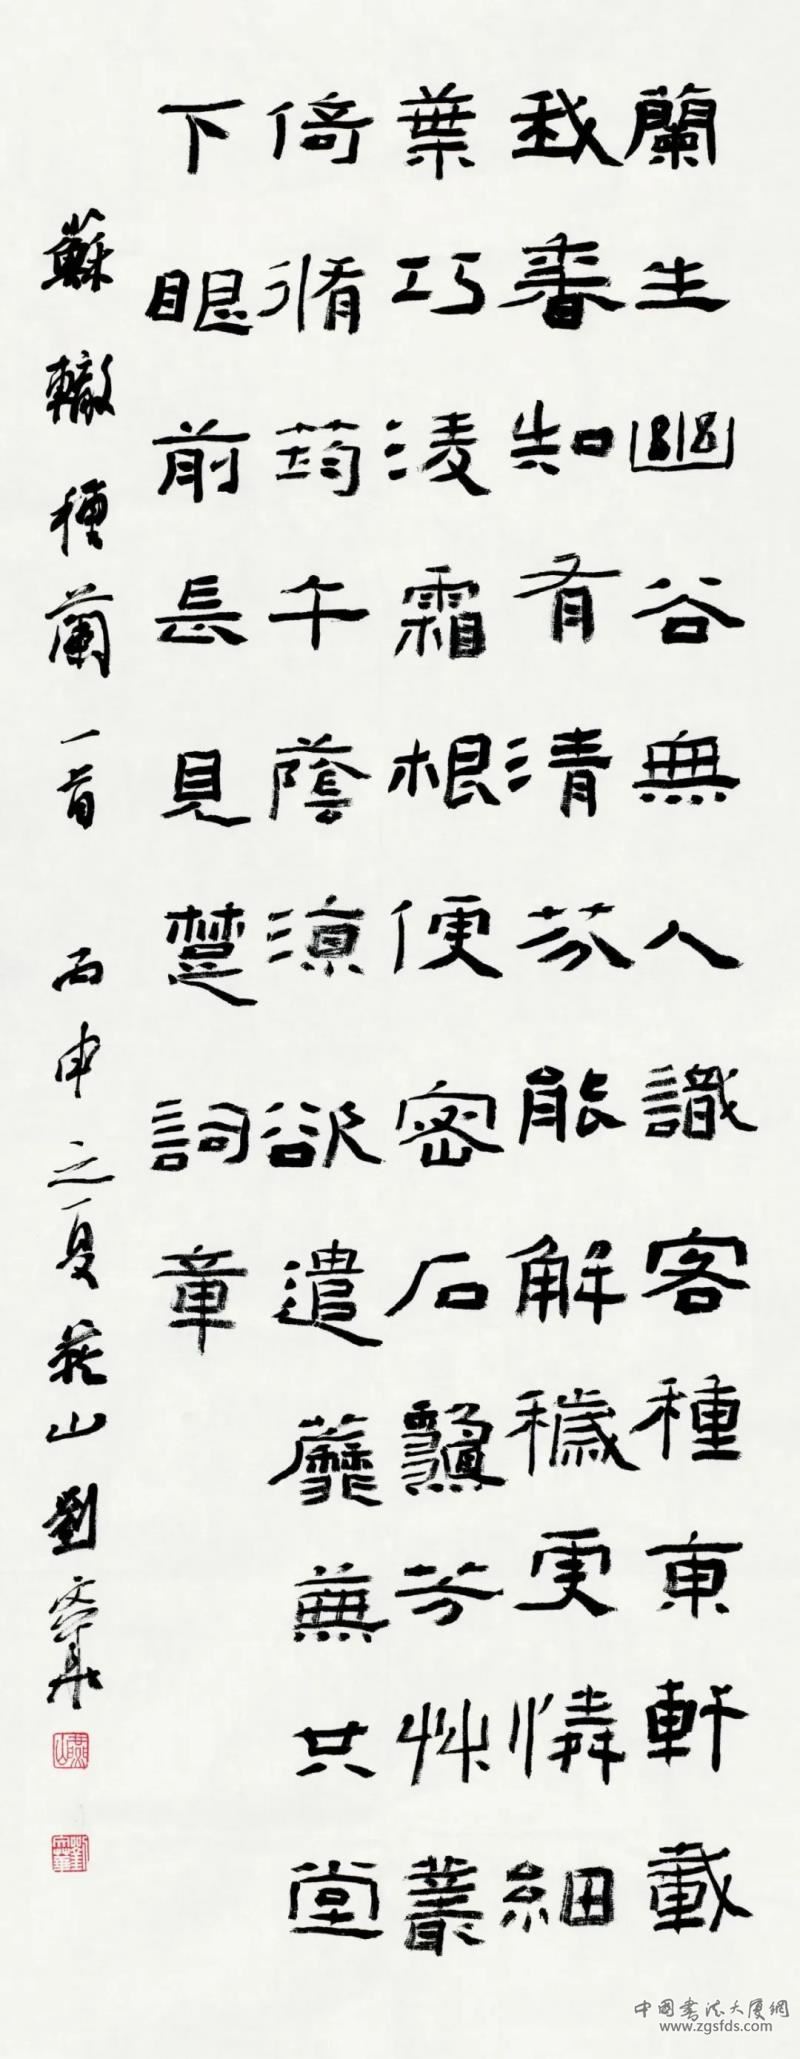 蘭生幽谷無人識客種東軒載
我香知有清芬能解穢更憐細
葉巧淩霜根便密石芳艸叢
倚脩筠午蔭涼欲遣蘼蕪共堂
下眼前長見楚詞章
蘇轍種蘭一首 丙申之夏燕山劉文華
中國書法大廈網
www.zgsfds.com